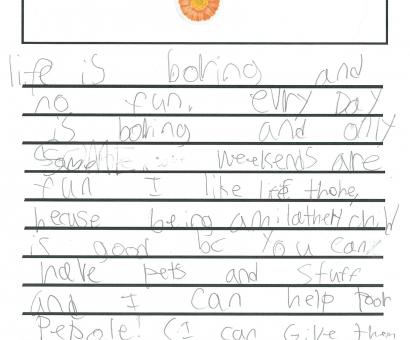 life is boring and
no fun. evry Day
is boring and only
some weekends are
fun I like life thohe,
becuse being am
is good bc you can
have pets and stuff
and I can help poor
Pepole! (I can Give them